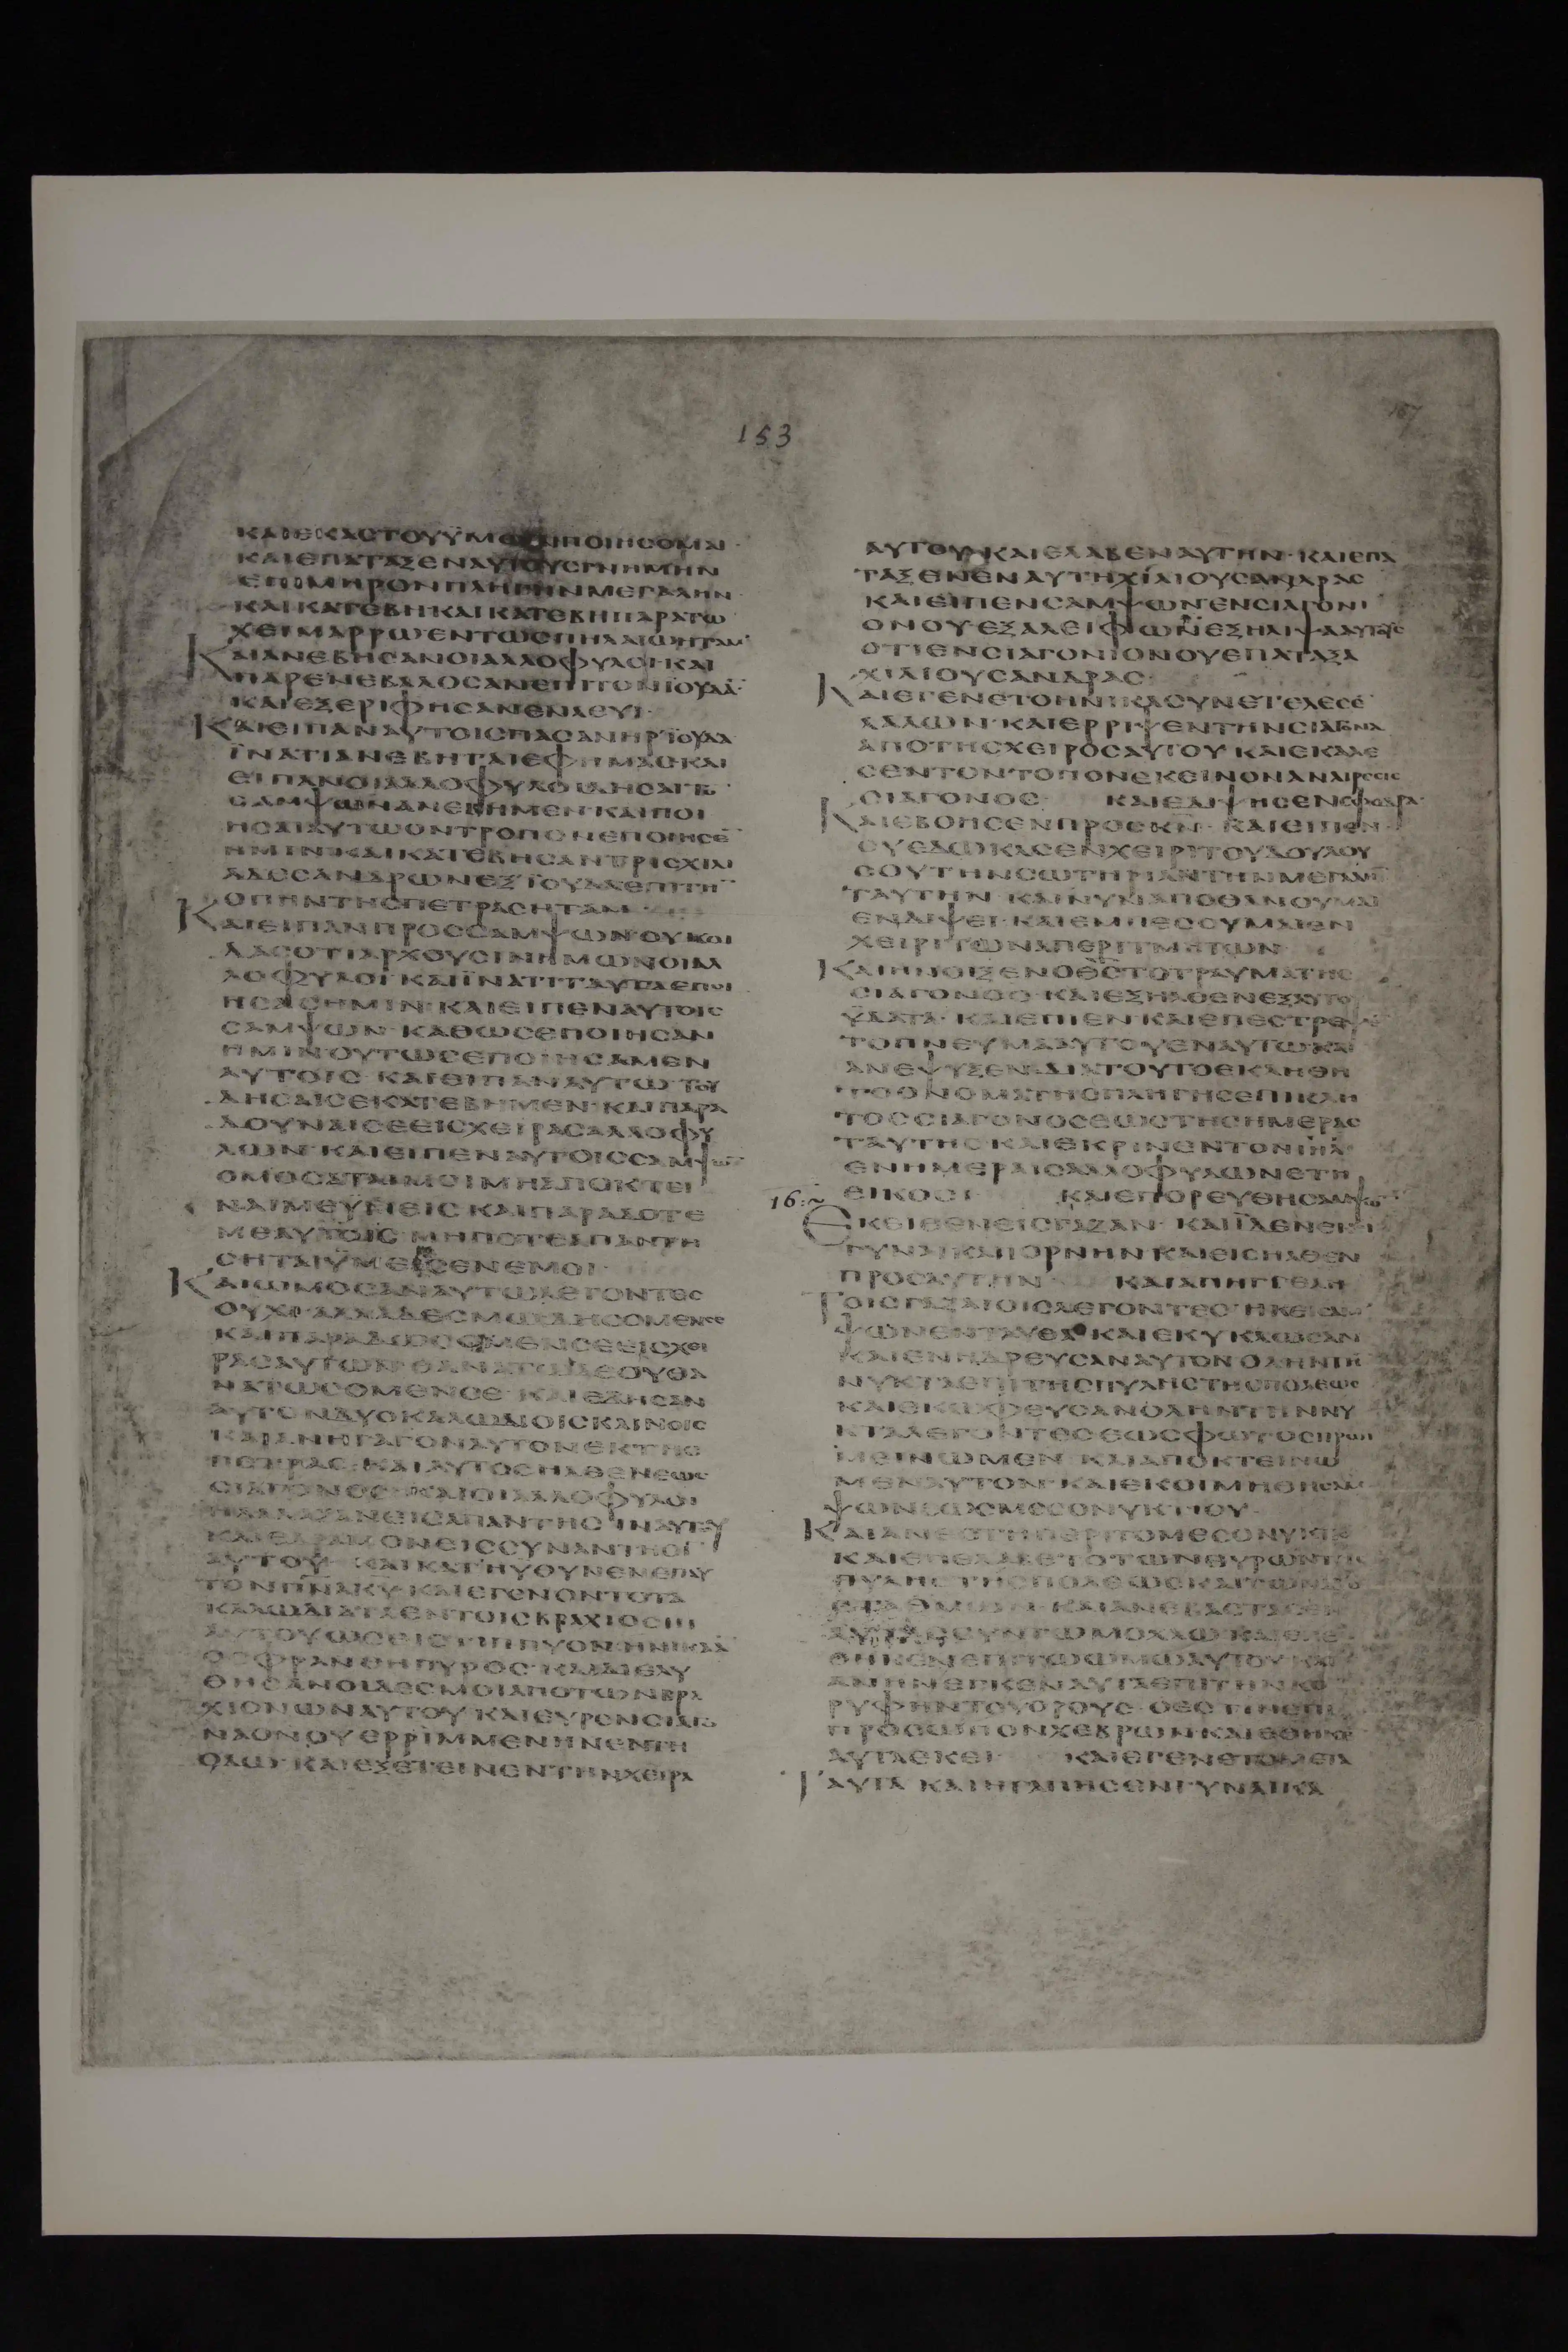 153
167
ΚΑΙΕΚΑΣΤΟΥΫΜΩΝΠΟΙΗΣΟΜΑΙ
ΚΑΙΕΠΑΤΑΞΕΝΑΥΤΟΥΣΚΝΗΜΗΝ
ΕΠΙΜΗΡΟΝΠΛΗΓΗΝΜΕΓΑΛΗΝ·
ΚΑΙΚΑΤΕΒΗ·ΚΑΙΚΑΤΕΒΗΠΑΡΑΤΩ
ΧΕΙΜΑΡΡΩΕΝΤΩΣΠΗΛΑΙΩΗΤΑΜ·
ΚΑΙΑΝΕΒΗΣΑΝΟΙΑΛΛΟΦΥΛΟΙ·ΚΑΙ
ΠΑΡΕΝΕΒΑΛΟΣΑΝΕΠΙΤΟΝΪΟΥΔΑ̅·
ΚΑΙΕΞΕΡΙΦΗΣΑΝΕΝΛΕΥΙ·
ΚΑΙΕΙΠΑΝΑΥΤΟΙΣΠΑΣΑΝΗΡΪΟΥΔΑ
ΪΝΑΤΙΑΝΕΒΗΤΑΙΕΦΗΜΑΣ·ΚΑΙ
ΕΙΠΑΝΟΙΑΛΛΟΦΥΛΟΙΔΗΣΑΙΤΟ̅
ΣΑΜΨΩΝΑΝΕΒΗΜΕΝ·ΚΑΙΠΟΙ
ΗΣΑΙΑΥΤΩΟΝΤΡΟΠΟΝΕΠΟΙΗΣΕ̅
ΗΜΙΝ·ΚΑΙΚΑΤΕΒΗΣΑΝΤΡΙΣΧΙΛΙ
ΑΔΕΣΑΝΔΡΩΝΕΞΪΟΥΔΑΕΠΙΤΗ̅
ΟΠΗΝΤΗΣΠΕΤΡΑΣΗΤΑΜ
ΚΑΙΕΙΠΑΝΠΡΟΣΣΑΜΨΩΝΟΥΚΟΙ
ΔΑΣΟΤΙΑΡΧΟΥΣΙΝΗΜΩΝΟΙΑΛ
ΛΟΦΥΛΟΙ·ΚΑΙΪΝΑΤΙΤΑΥΤΑΕΠΟΙ
ΗΣΑΣΗΜΙΝ·ΚΑΙΕΙΠΕΝΑΥΤΟΙΣ
ΣΑΜΨΩΝ·ΚΑΘΩΣΕΠΟΙΗΣΑΝ
ΗΜΙΝΟΥΤΩΣΕΠΟΙΗΣΑΜΕΝ
ΑΥΤΟΙΣ·ΚΑΙΕΙΠΑΝΑΥΤΩΤΟΥ
ΔΗΣΑΙΣΕΚΑΤΕΒΗΜΕΝ·ΚΑΙΠΑΡΑ
ΔΟΥΝΑΙΣΕΕΙΣΧΕΙΡΑΣΑΛΛΟΦΥ
ΛΩΝ·ΚΑΙΕΙΠΕΝΑΥΤΟΙΣΣΑΜΨΩ̅
ΟΜΟΣΑΤΑΙΜΟΙΜΗΑΠΟΚΤΕΙ
ΝΑΙΜΕΫΜΕΙΣ·ΚΑΙΠΑΡΑΔΟΤΕ
ΜΕΑΥΤΟΙΣ·ΜΗΠΟΤΕΑΠΑΝΤΗ
ΣΗΤΑΙΫΜΕΙΣΕΝΕΜΟΙ·
ΚΑΙΩΜΟΣΑΝΑΥΤΩΛΕΓΟΝΤΕΣ
ΟΥΧΙ·ΑΛΛΑΔΕΣΜΩΔΗΣΟΜΕΝΣΕ
ΚΑΙΠΑΡΑΔΩΣΟΜΕΝΣΕΕΙΣΧΕΙ
ΡΑΣΑΥΤΩΝ·ΘΑΝΑΤΩΔΕΟΥΘΑ
ΝΑΤΩΣΟΜΕΝΣΕ·ΚΑΙΕΔΗΣΑΝ
ΑΥΤΟΝΔΥΟΚΑΛΩΔΙΟΙΣΚΑΙΝΟΙΣ
ΚΑΙΑΝΗΓΑΓΟΝΑΥΤΟΝΕΚΤΗΣ
ΠΕΤΡΑΣ·ΚΑΙΑΥΤΟΣΗΛΘΕΝΕΩΣ
ΣΙΑΓΟΝΟΣ·ΚΑΙΟΙΑΛΛΟΦΥΛΟΙ
ΗΛΑΛΑΞΑΝΕΙΣΑΠΑΝΤΗΣΙΝΑΥΤΟΥ
ΚΑΙΕΔΡΑΜΟΝΕΙΣΣΥΝΑΝΤΗΣΙ̅
ΑΥΤΟΥ·ΚΑΙΚΑΤΗΥΘΥΝΕΝΕΠΑΥ
ΤΟΝΠ̅Ν̅Α̅Κ̅Υ̅·ΚΑΙΕΓΕΝΟΝΤΟΤΑ
ΚΑΛΩΔΙΑΤΑΕΝΤΟΙΣΒΡΑΧΙΟΣΙΝ
ΑΥΤΟΥΩΣΕΙΣΤΙΠΠΥΟΝΗΝΙΚΑΑ̅
ΟΣΦΡΑΝΘΗΠΥΡΟΣ·ΚΑΙΔΙΕΛΥ
ΘΗΣΑΝΟΙΔΕΣΜΟΙΑΠΟΤΩΝΒΡΑ
ΧΙΟΝΩΝΑΥΤΟΥ·ΚΑΙΕΥΡΕΝΣΙΑΓΟ
ΝΑΟΝΟΥΕΡΡΙΜΜΕΝΗΝΕΝΤΗ
ΟΔΩ·ΚΑΙΕΞΕΤΕΙΝΕΝΤΗΝΧΕΙΡΑ
ΑΥΤΟΥ·ΚΑΙΕΛΑΒΕΝΑΥΤΗΝ·ΚΑΙΕΠΑ
ΤΑΞΕΝΕΝΑΥΤΗΧΙΛΙΟΥΣΑΝΔΡΑΣ
ΚΑΙΕΙΠΕΝΣΑΜΨΩΝ·ΕΝΣΙΑΓΟΝΙ
ΟΝΟΥΕΞΑΛΕΙΦΩΝΕΞΗΛΙΨΑΑΥΤΟΥΣ
ΟΤΙΕΝΣΙΑΓΟΝΙΟΝΟΥΕΠΑΤΑΞΑ
ΧΙΛΙΟΥΣΑΝΔΡΑΣ·
ΚΑΙΕΓΕΝΕΤΟΗΝΙΚΑΣΥΝΕΤΕΛΕΣΕ̅
ΛΑΛΩΝ·ΚΑΙΕΡΡΙΨΕΝΤΗΝΣΙΑΓΟΝΑ
ΑΠΟΤΗΣΧΕΙΡΟΣΑΥΤΟΥ·ΚΑΙΕΚΑΛΕ
ΣΕΝΤΟΝΤΟΠΟΝΕΚΕΙΝΟΝΑΝΑΙΡΕΣΙΣ
ΣΙΑΓΟΝΟΣ· ΚΑΙΕΔΙΨΗΣΕΝΣΦΟΔΡΑ·
ΚΑΙΕΒΟΗΣΕΝΠΡΟΣΚ̅Ν̅·ΚΑΙΕΙΠΕΝ·
ΣΥΕΔΩΚΑΣΕΝΧΕΙΡΙΤΟΥΔΟΥΛΟΥ
ΣΟΥΤΗΝΣΩΤΗΡΙΑΝΤΗΝΜΕΓΑΛΗ̅
ΤΑΥΤΗΝ·ΚΑΙΝΥΝΑΠΟΘΑΝΟΥΜΑΙ
ΕΝΔΙΨΕΙ·ΚΑΙΕΜΠΕΣΟΥΜΑΙΕΝ
ΧΕΙΡΙΤΩΝΑΠΕΡΙΤΜΗΤΩΝ
ΚΑΙΗΝΟΙΞΕΝΟΘ̅Σ̅ΤΟΤΡΑΥΜΑΤΗΣ
ΣΙΑΓΟΝΟΣ·ΚΑΙΕΞΗΛΘΕΝΕΞΑΥΤΟΥ
ΫΔΑΤΑ·ΚΑΙΕΠΙΕΝ·ΚΑΙΕΠΕΣΤΡΕΨΕ̅
ΤΟΠΝΕΥΜΑΑΥΤΟΥΕΝΑΥΤΩΚΑΙ
ΑΝΕΨΥΞΕΝ·ΔΙΑΤΟΥΤΟΕΚΛΗΘΗ
ΤΟΟΝΟΜΑΤΗΣΠΗΓΗΣΕΠΙΚΛΗ
ΤΟΣΣΙΑΓΟΝΟΣΕΩΣΤΗΣΗΜΕΡΑΣ
ΤΑΥΤΗΣ·ΚΑΙΕΚΡΙΝΕΝΤΟΝΙ̅Η̅Λ̅
ΕΝΗΜΕΡΑΙΣΑΛΛΟΦΥΛΩΝΕΤΗ
16:~ ΕΙΚΟΣΙ ΚΑΙΕΠΟΡΕΥΘΗΣΑΜΨΩ̅
ΕΚΕΙΘΕΝΕΙΣΓΑΖΑΝ·ΚΑΙΪΔΕΝΕΚΕΙ
ΓΥΝΑΙΚΑΠΟΡΝΗΝ·ΚΑΙΕΙΣΗΛΘΕΝ
ΠΡΟΣΑΥΤΗΝ ΚΑΙΑΠΗΓΓΕΛΗ
ΤΟΙΣΓΑΖΑΙΟΙΣΛΕΓΟΝΤΕΣ·ΗΚΕΙΣΑΜ
ΨΩΝΕΝΤΑΥΘΑ·ΚΑΙΕΚΥΚΛΩΣΑΝ
ΚΑΙΕΝΗΔΡΕΥΣΑΝΑΥΤΟΝΟΛΗΝΤΗ̅
ΝΥΚΤΑΕΠΙΤΗΣΠΥΛΗΣΤΗΣΠΟΛΕΩΣ
ΚΑΙΕΚΩΦΕΥΣΑΝΟΛΗΝΤΗΝΝΥ
ΚΤΑΛΕΓΟΝΤΕΣΕΩΣΦΩΤΟΣΠΡΩΙ
ΜΕΙΝΩΜΕΝ·ΚΑΙΑΠΟΚΤΕΙΝΩ
ΜΕΝΑΥΤΟΝ·ΚΑΙΕΚΟΙΜΗΘΗΣΑΜ
ΨΩΝΕΩΣΜΕΣΟΝΥΚΤΙΟΥ·
ΚΑΙΑΝΕΣΤΗΠΕΡΙΤΟΜΕΣΟΝΥΚΤΙΟ̅
ΚΑΙΕΠΕΛΑΒΕΤΟΤΩΝΘΥΡΩΝΤΗΣ
ΠΥΛΗΣΤΗΣΠΟΛΕΩΣΚΑΙΤΩΝΔΥΟ
ΣΤΑΘΜΩΝ·ΚΑΙΑΝΕΒΑΣΤΑΣΕΝ
ΑΥΤΑΣΣΥΝΤΩΜΟΧΛΩ·ΚΑΙΕΠΕ
ΘΗΚΕΝΕΠΙΤΩΩΜΩΑΥΤΟΥ·ΚΑΙ
ΑΝΗΝΕΓΚΕΝΑΥΤΑΕΠΙΤΗΝΚΟ
ΡΥΦΗΝΤΟΥΟΡΟΥΣ·ΟΕΣΤΙΝΕΠΙ
ΠΡΟΣΩΠΟΝΧΕΒΡΩΝ·ΚΑΙΕΘΗΚΕ̅
ΑΥΤΑΕΚΕΙ· ΚΑΙΕΓΕΝΕΤΟΜΕΤΑ
ΤΑΥΤΑ·ΚΑΙΗΓΑΠΗΣΕΝΓΥΝΑΙΚΑ